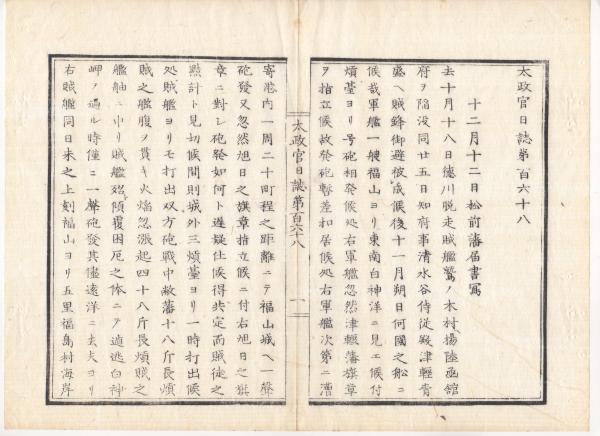 太政官日誌第百六十八
十二月十二日松前藩届書寫
去十月十八日德川脱走賊艦鷲ノ木村ヘ揚陸函舘
府ヲ陥没同廿五日知府事清水谷侍從殿津輕青
森ヘ賊鋒御避被成候後十一月朔日何國之船ニ
候哉軍艦一艘福山ヨリ東南白神洋ニ見エ候付
熕臺ヨリ号砲相發候処右軍艦忽然津輕藩旗章
ヲ指立候故発砲暫差扣居候処右軍艦次第ニ漕
太政官日誌第百六十八
一
寄港内一周二十町程之距離ニテ福山城ヘ一聲
砲發又忽然旭日之旗章指立候ニ付右旭日之旗
章ニ對シ砲發如何ト遅疑仕候得共定而賊徒之
黠計ト見切候間則城外三熕臺ヨリ一時打出候
処賊艦ヨリモ打出双方砲戦中敝藩十八斤長熕
賊之艦腹ヲ貫キ火焔忽漲起四十八斤長熕賊之
艦舳ニ中リ賊艦殆傾覆困厄之体ニテ遁逃白神
岬ヲ過ル時僅ニ一聲砲發其儘遠洋ニ去夫ヨリ
右賊艦同日未之上刻福山ヨリ五里福島村海岸